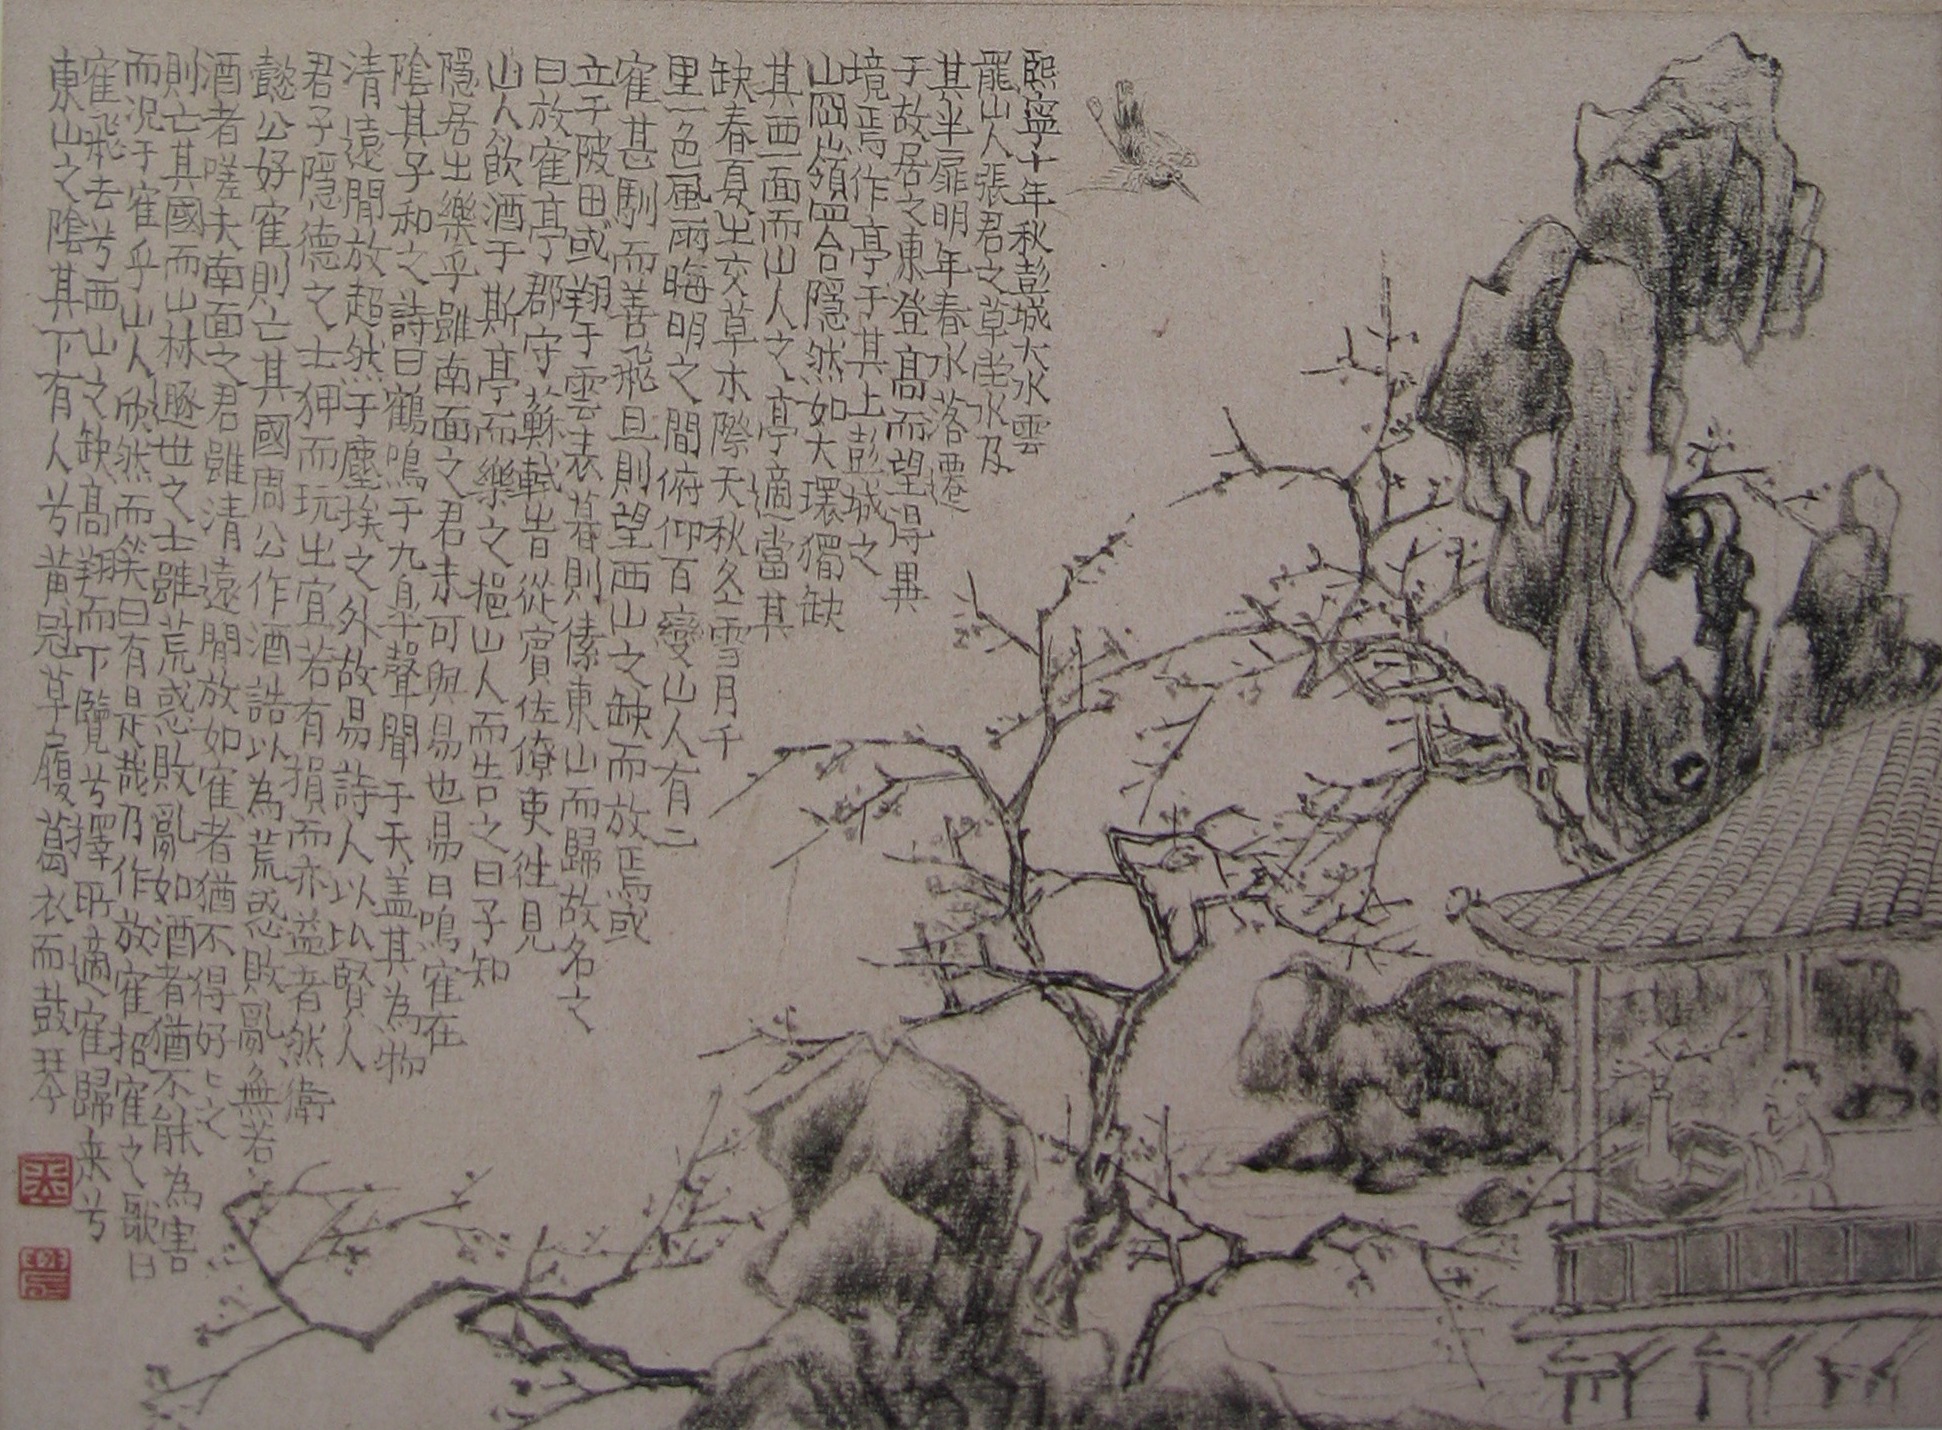 熙寧十年秋彭城大水雲
龍山人張君之草堂水及
其半扉明年春水落遷
于故居之東登高而望得異
境焉作亭于其上彭城之
山岡嶺四合隱然如大環獨缺
其西一面而山人之亭適當其
缺春夏之交草木際天秋冬雪月千
里一色風雨晦明之間俯仰百變山人有二
寉甚馴而善飛旦則望西山之缺而放焉或
立于陂田或翔于雲表暮則傃東山而歸故名之
曰放寉亭郡守蘇軾昔從賓佐僚吏徃見
山人飲酒于斯亭而樂之挹山人而告之曰子知
隱居之樂乎雖南面之君未可與易也易曰鳴寉在
陰其子和之詩曰鶴鳴于九皋聲聞于天盖其為物
清遠閒放超然于塵埃之外故易詩人以比賢人
君子隱德之士狎而玩之宜若有損而亦益者然衛
懿公好寉則亡其國周公作酒誥以為荒惑敗亂無若
酒者嗟夫南面之君雖清遠閒放如寉者猶不得好〻之
則亡其國而山林遯世之士雖荒惑敗亂如酒者猶不能為害
而況于寉乎山人欣然而笑曰有是哉乃作放寉招寉之歌曰
寉飛去兮西山之缺高翔而下覽兮擇所適寉歸來兮
東山之陰其下有人兮黃冠草履葛衣而鼓琴